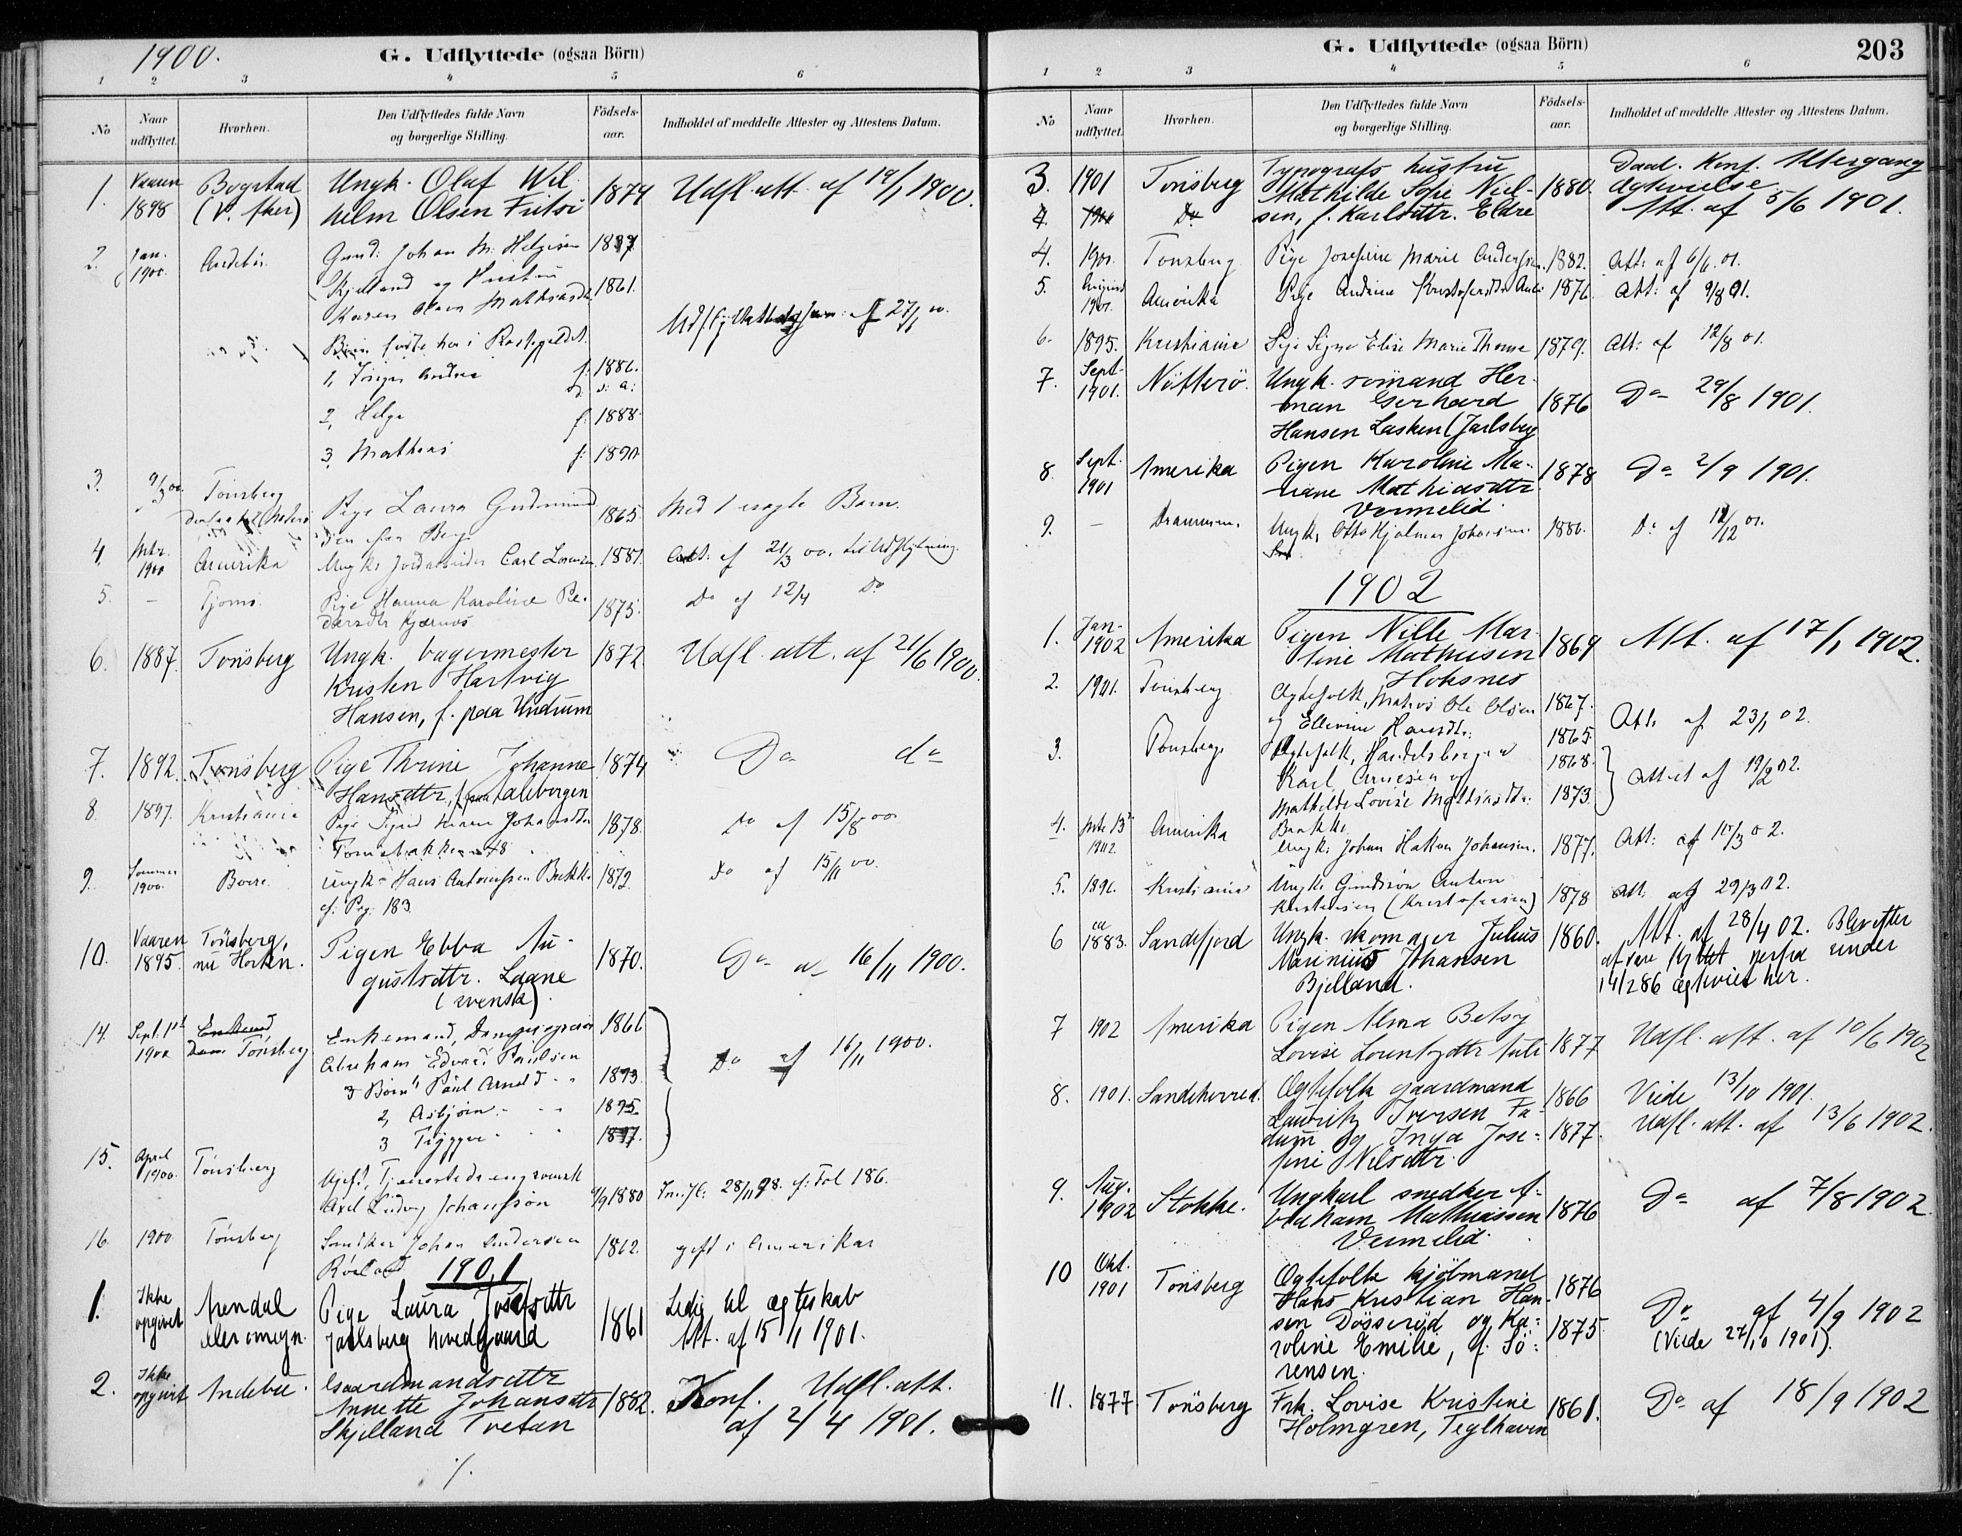 1900.
G. Udflyttede (ogsaa Börn)
1 2 3 4 5 6
No
Naar udflyttet.
Hvorhen.
Den Udflyttedes fulde Navn og borgerlige Stilling.
Födsels-aar.
Indholdet af meddelte Attester og Attestens Datum.
1. Vaaren Bogstad Ungk. Olaf Wil 1874 Udfl. att. af 19/1 1900.
1898 helm Olsen
2. Jan. Gmd. Johan M. Helgesen
1900. og Hustru 1861.
Karen
Børn fødte her i Præstegjeldet
1, Andrea f: 1886.
2, Helge f: 1888
3, Mathias f: 1890
3. Tønsberg Pige Laura 1865 Med 1 uægte Barn.
4. 1900 Amerika Ungk. Carl 1881. Att: af 21/3 00. til Udflytning.
5. - Tjømø. Pige Hanna Karoline Pe- 1875. Do af 12/4 Do
dersdtr
6. 1887. Tønsberg Ungk. bagermester 1872. Udfl. att. af 21/6 1900.
Kristen Hartvig
Hansen, f. paa Undrum
7. 1892. Tønsberg Pige Thrine Johanne 1874 Do do
Hansdtr,
8. 1897. Kristiania Pige Johansdtr 1878. Do af 15/8 00
9. Sommer Borre. Ungk. Hans 1872. Do af 15/11 00.
1900. cf. Pag. 183.
10. Vaaren Tønsberg, Pigen Ebba Au- 1870. Do af 16/11 1900.
1895. nu Horten. gustsdtr. Lagne
(svensk).
14. Sept. Tønsberg Enkemand, 1866
1900 Abraham Edvard Paulsen Do af 16/11 1900.
3 Børn Paul Arnold 1893.
2, Asbjørn 1895.
3 1897.
15. April Tønsberg Ugift,
1900. Axel Ludvig Johansson 1880 Indfl: 28/11 98. cf: Fol 186.
16. 1900 Tønsberg Snedker Johan Andersen 1862. gift i Amerika
1901
1. Ikke Arendal Pige Laura Josefsdtr 1861 Ledig til ægteskab
opgivet eller omegn. Jarlsberg hovedgaard Att. af 15/11 1901.
2. Ikke Andebu. Gaardmandsdtr 1882. Konf. Udfl. att.
opgivet Annette Johansdtr af 2/4 1901.
Skjelland Tvetan
G. Udflyttede (ogsaa Börn)
203
1 2 3 4 5 6
No
Naar udflyttet.
Hvorhen.
Den Udflyttedes fulde Navn og borgerlige Stilling.
Födsels-aar.
Indholdet af meddelte Attester og Attestens Datum.
3. 1901 Tønsberg Typografs hustru 1880. Daab. Konf. Altergang
Mathilde Sofie Niel- Ægtevielse
4. Do sen, f. Karlsdtr. Eldre Att. af 5/6 1901.
4. 1901. Tønsberg Pige Josefine Marie Andersen 1882. Att: af 6/6. 01.
5. August Amerika Pige Andrine 1876 Att: af 9/8 01.
1901.
6. 1895. Kristiania Pige Signe Elise Marie 1879. Att: af 12/8 01.
7. Sept Nötterö. Ungk. sömand Her- 1876 Do 29/8 1901.
1901. man Gerhard
Hansen Lasken (Jarlsberg
8. Sept. Amerika Pigen Karoline Ma- 1878 Do 2/9 1901.
1901 riane Mathiasdtr.
Vermelid
9. - Drammen. Ungk. Otto Hjalmar Johansen 1880. Do af 12/12 01.
1902
1. Jan- Amerika Pigen Nille Mar- 1869 Att. af 17/1 1902.
1902 tine Mathisen
Hoksnes
2. 1901. Tønsberg Ægtefolk, Matros Ole Olsen 1867. Att. af 23/1 02.
og Ellevine Hansdtr. 1865
3. Tønsberg Ægtefolk, Handelsborger 1868. Attest af 19/2 02.
Karl Arnesen og
Mathilde Lovise Mathiasdtr. 1873.
4. 1902. Amerika Ungk. Johan Hakon Johansen. 1877. Att: af 10/3 02.
5. Kristiania Ungk. Anton 1878 Att. af 29/3 02.
Kristensen (Kristofersen)
6 ca 1883. Sandefjord Ungk. skomager Julius 1860. Att. af 28/4 02. Blev efter
Marinius Johansen at være flyttet herfra under
Bjelland. 14/2 86 ægteviet her.
7 1902 Amerika Pigen Alma Betsy 1877 Udfl. att. af 10/6 1902
Lovise Lorentzdtr
8. 1901. Sandeherred. Ægtefolk gaardmand 1866 Viede 13/10 1901.
Lauritz Iversen Fa- Udfl. att. af 13/6 1902.
dum og Inga Jose- 1877.
fine Nilsdtr.
9. Aug. Stokke. Ungkarl snedker A- 1876 Do af 7/8 1902.
1902 braham Mathiassen
Vermelid
10 Okt. Tønsberg Ægtefolk kjøbmand 1876 Do af 4/9 1902
1901 Hans Kristian Han-
sen Døsserød og Ka- 1875. (Viede 27/10 1901).
roline Emilie, f. Sö-
rensen.
11. 1877. Tønsberg Frk. Lovise Kristine 1861. Do af 18/9 1902
Holmgren, Teglhaven